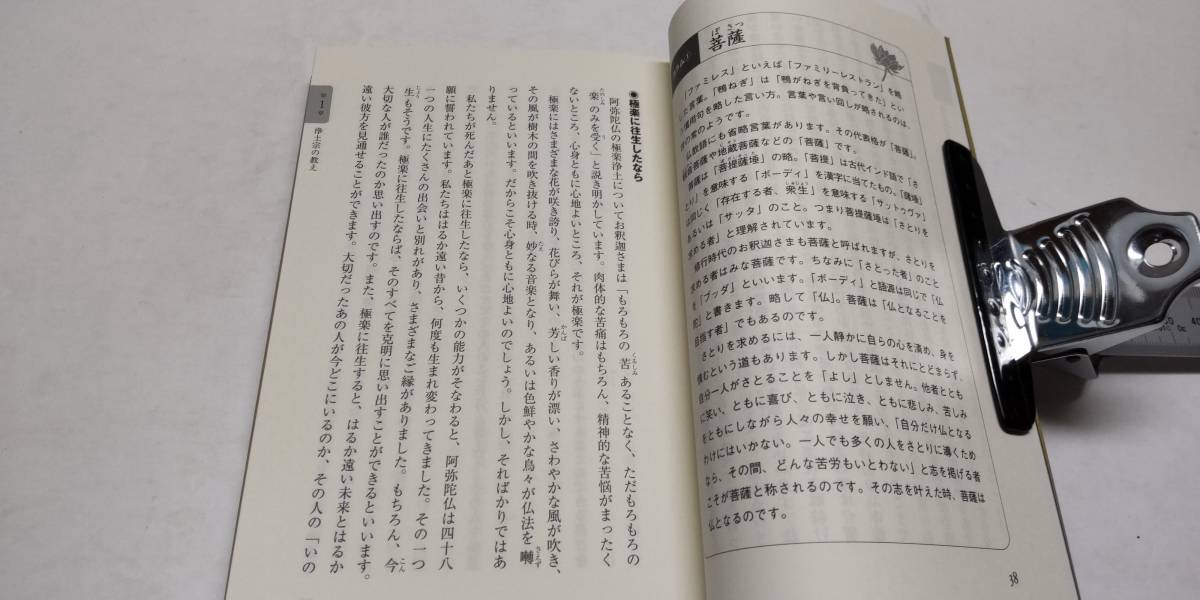 菩薩
ぼさつ
「ファミレス」といえば「ファミリーレストラン」を略
した言葉。「鴨ねぎ」は「鴨がねぎを背負ってきた」とい
う慣用句を略した言い方。言葉や言い回しが略されるのは、
世の常のようです。
仏教語にも省略言葉があります。その代表格が「菩薩」。
観音菩薩や地蔵菩薩などの「菩薩」です。
菩薩は「菩提薩埵」の略。「菩提」は古代インド語で「さ
とり」を意味する「ボーディ」を漢字に当てたもの。「薩埵」
は同じく「存在する者、衆生」を意味する「サットゥヴァ」
あるいは「サッタ」のこと。つまり菩提薩埵は「さとりを
求める者」と理解されています。
修行時代のお釈迦さまも菩薩と呼ばれますが、さとりを
求める者はみな菩薩です。ちなみに「さとった者」のこと
を「ブッダ」といいます。「ボーディ」と語源は同じで「仏
陀」と書きます。略して「仏」。菩薩は「仏となることを
目指す者」でもあるのです。
さとりを求めるには、一人静かに自らの心を清め、身を
慎むという道もあります。しかし菩薩はそれにとどまらず、
自分一人がさとることを「よし」としません。他者ととも
に笑い、ともに喜び、ともに泣き、ともに悲しみ、苦しみ
をともにしながら人々の幸せを願い、「自分だけ仏となる
わけにはいかない。一人でも多くの人をさとりに導くため
なら、その間、どんな苦労もいとわない」と志を掲げる者
こそが菩薩と称されるのです。その志を叶えた時、菩薩は
仏となるのです。
38
●極楽に往生したなら
阿弥陀仏の極楽浄土についてお釈迦さまは「もろもろの苦あることなく、ただもろもろの
楽のみを受く」と説き明かしています。肉体的な苦痛はもちろん、精神的な苦悩がまったく
ないところ、心身ともに心地よいところ、それが極楽です。
極楽にはさまざまな花が咲き誇り、花びらが舞い、芳しい香りが漂い、さわやかな風が吹き、
その風が樹木の間を吹き抜ける時、妙なる音楽となり、あるいは色鮮やかな鳥々が仏法を囀
っているといいます。だからこそ心身ともに心地よいのでしょう。しかし、そればかりではあ
りません。
私たちが死んだあと極楽に往生したなら、いくつかの能力がそなわると、阿弥陀仏は四十八
願に誓われています。私たちははるか遠い昔から、何度も生まれ変わってきました。その一つ
一つの人生にたくさんの出会いと別れがあり、さまざまなご縁がありました。もちろん、今
生もそうです。極楽に往生したならば、そのすべてを克明に思い出すことができるといいます。
大切な人が誰だったのか思い出すのです。また、極楽に往生すると、はるか遠い未来とはるか
遠い彼方を見通せることができます。大切だったあの人が今どこにいるのか、その人の「いの
第1章
浄土宗の教え